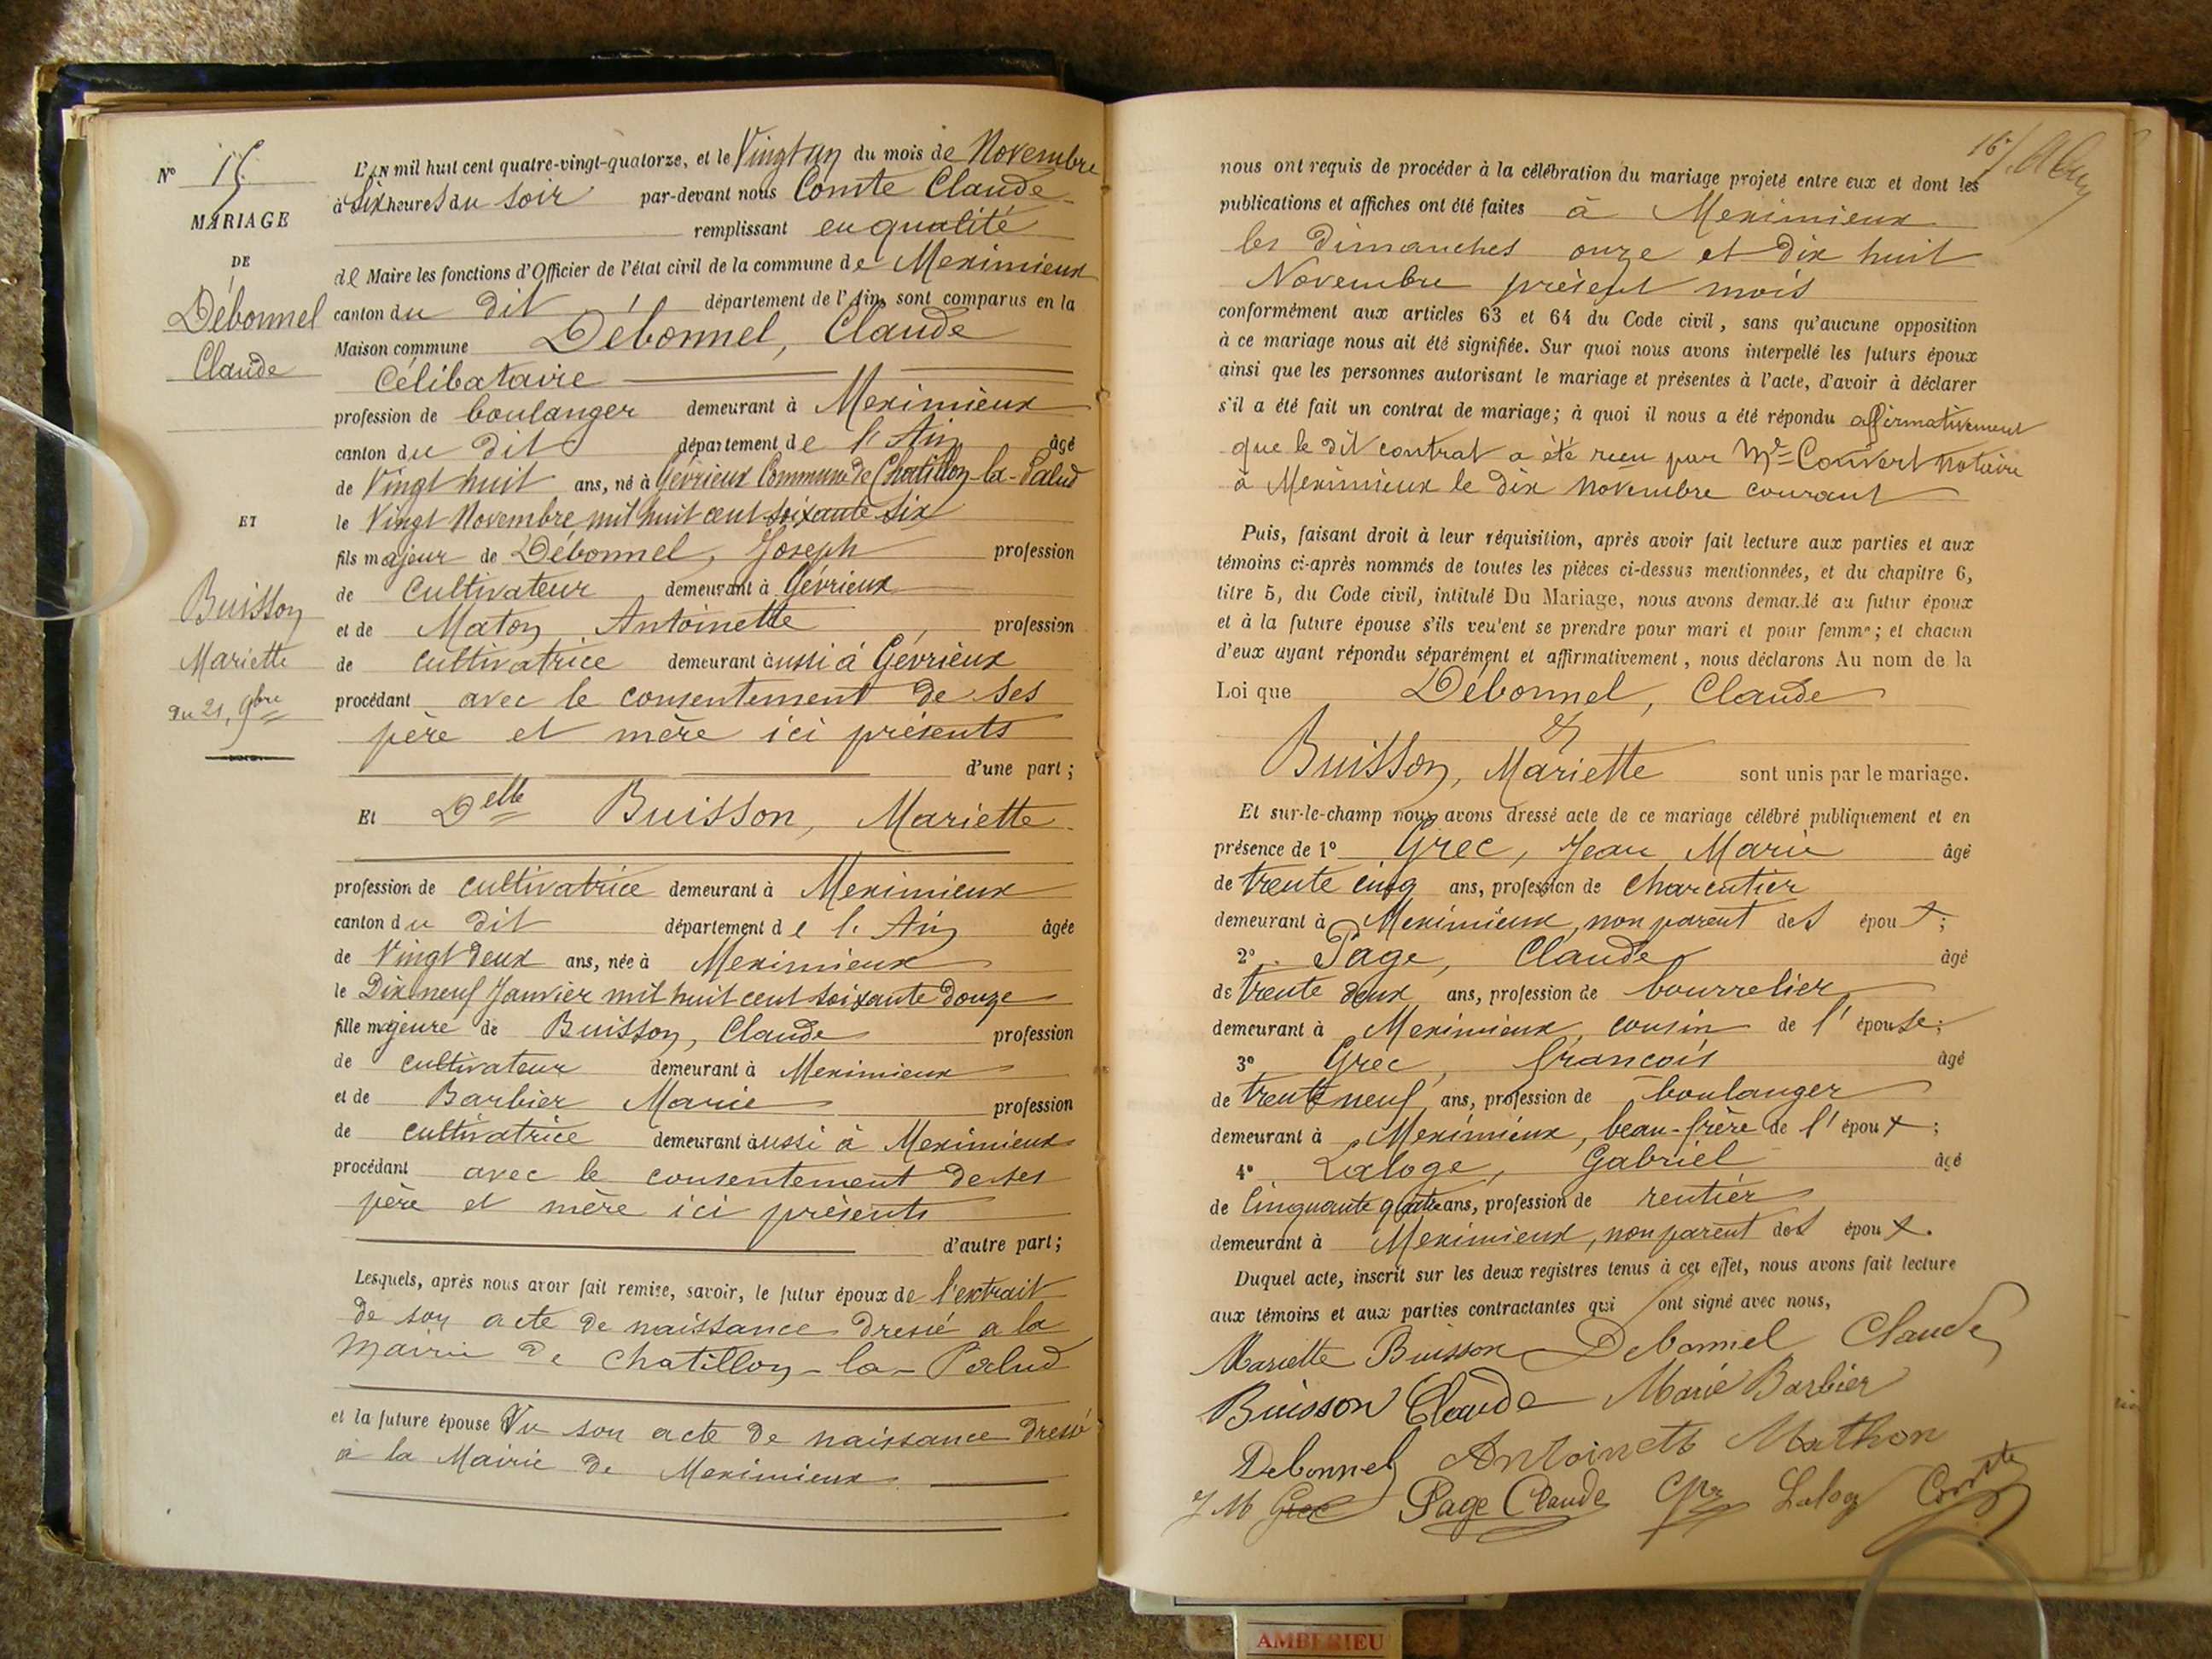 N° 15
MARIAGE
DE
Débonnel
Claude
ET
Buisson
Mariette
du 21, 9bre
L'AN mil huit cent quatre-vingt-quatorze, et le Vingt un du mois de Novembre
à Six heures du soir par-devant nous Comte Claude
remplissant en qualité
de Maire les fonctions d'Officier de l'état civil de la commune de Meximieux
canton du dit département de l'Ain, sont comparus en la
Maison commune Débonnel, Claude
Célibataire
profession de boulanger demeurant à Meximieux
canton du dit département de l'Ain âgé
de Vingt huit ans, né à Gévrieux Commune de Chatillon-la-Palud
le Vingt Novembre mil huit cent soixante six
fils majeur de Débonnel, Joseph profession
de Cultivateur demeurant à Gévrieux
et de Maton Antoinette profession
de cultivatrice demeurant aussi à Gévrieux
procédant avec le consentement de ses
père et mère ici présents
d'une part ;
Et Delle Buisson, Mariette
profession de cultivatrice demeurant à Meximieux
canton du dit département de l'Ain âgée
de Vingt deux ans, née à Meximieux
le Dix neuf Janvier mil huit cent soixante douze
fille majeure de Buisson, Claude profession
de cultivateur demeurant à Meximieux
et de Barbier Marie profession
de cultivatrice demeurant aussi à Meximieux
procédant avec le consentement de ses
père et mère ici présents
d'autre part ;
Lesquels, après nous avoir fait remise, savoir, le futur époux de l'extrait
de son acte de naissance dressé a la
Mairie de Chatillon-la-Palud
et la future épouse Vu son acte de naissance dressé
à la Mairie de Meximieux
16
nous ont requis de procéder à la célébration du mariage projeté entre eux et dont les
publications et affiches ont été faites à Meximieux
les dimanches onze et dix huit
Novembre présent mois
conformément aux articles 63 et 64 du Code civil, sans qu'aucune opposition
à ce mariage nous ait été signifiée. Sur quoi nous avons interpellé les futurs époux
ainsi que les personnes autorisant le mariage et présentes à l'acte, d'avoir à déclarer
s'il a été fait un contrat de mariage ; à quoi il nous a été répondu affirmativement
que le dit contrat a été reçu par Me Convert notaire
à Meximieux le dix novembre courant
Puis, faisant droit à leur réquisition, après avoir fait lecture aux parties et aux
témoins ci-après nommés de toutes les pièces ci-dessus mentionnées, et du chapitre 6,
titre 5, du Code civil, intitulé Du Mariage, nous avons demandé au futur époux
et à la future épouse s'ils veulent se prendre pour mari et pour femme ; et chacun
d'eux ayant répondu séparément et affirmativement, nous déclarons Au nom de la
Loi que Débonnel, Claude
et
Buisson, Mariette sont unis par le mariage.
Et sur-le-champ nous avons dressé acte de ce mariage célébré publiquement et en
présence de 1° Grec, Jean Marie âgé
de trente cinq ans, profession de charcutier
demeurant à Meximieux, non parent des époux ;
2° Page, Claude âgé
de trente deux ans, profession de bourrelier
demeurant à Meximieux, cousin de l'épouse ;
3° Grec, François âgé
de trente neuf ans, profession de boulanger
demeurant à Meximieux, beau-frère de l'époux ;
4° Laloge, Gabriel âgé
de Cinquante quatre ans, profession de rentier
demeurant à Meximieux, non parent des époux.
Duquel acte, inscrit sur les deux registres tenus à cet effet, nous avons fait lecture
aux témoins et aux parties contractantes qui ont signé avec nous,
Mariette Buisson Debonnel Claude
Buisson Claude Marie Barbier
Debonnel Antoinette Mathon
J M Grec Page Claude Comte
AMBERIEU